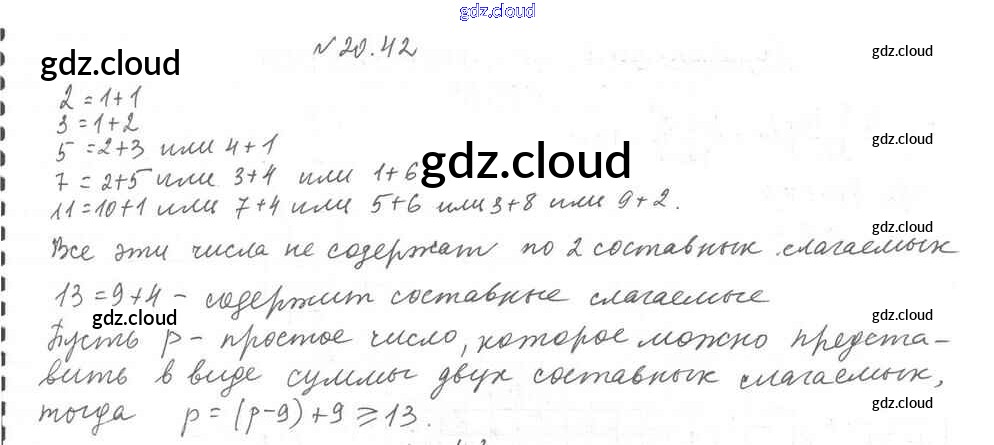 gdz.cloud
№ 20.42
gdz.cloud
gdz.cloud
2 = 1+1
3 = 1+2
5 = 2+3 или 4+1
gdz.cloud
7 = 2+5 или 3+4 или 1+6
gdz.cloud
11 = 10+1 или 7+4 или 5+6 или 3+8 или 9+2.
gdz.cloud
Все эти числа не содержат по 2 составных слагаемых
13 = 9+4 – содержит составные слагаемые
gdz.cloud
gdz.cloud
Пусть p – простое число, которое можно предста-
вить в виде суммы двух составных слагаемых,
тогда p = (p-9) + 9 ≥ 13.
gdz.cloud